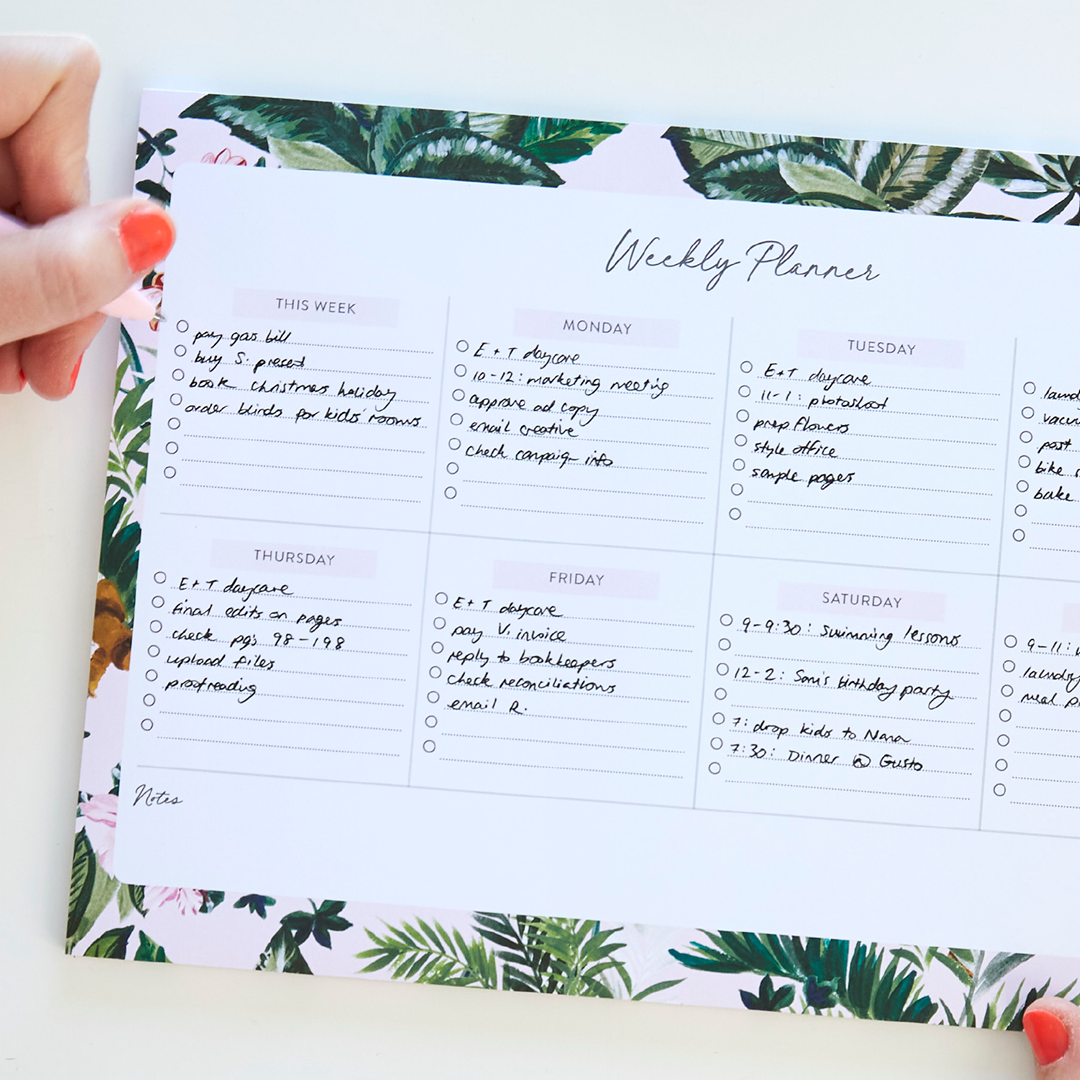 Weekly Planner
THIS WEEK
pay gas bill
buy S. present
book christmas holiday
order blinds for kids' rooms
MONDAY
E + T daycare
10-12: marketing meeting
approve ad copy
email creative
check campaign info
TUESDAY
E+T daycare
11-1: photoshoot
prep flowers
style office
sample pages
post
bike
bake
THURSDAY
E+ T daycare
final edits on pages
check pg's 98-198
upload files
proofreading
FRIDAY
E+ T daycare
pay V. invoice
reply to bookkeepers
check reconciliations
email R.
SATURDAY
9-9:30: Swimming lessons
12-2: Sam's birthday party
7: drop kids to Nana
7:30: Dinner @ Gusto
9-11:
laundry
meal
Notes